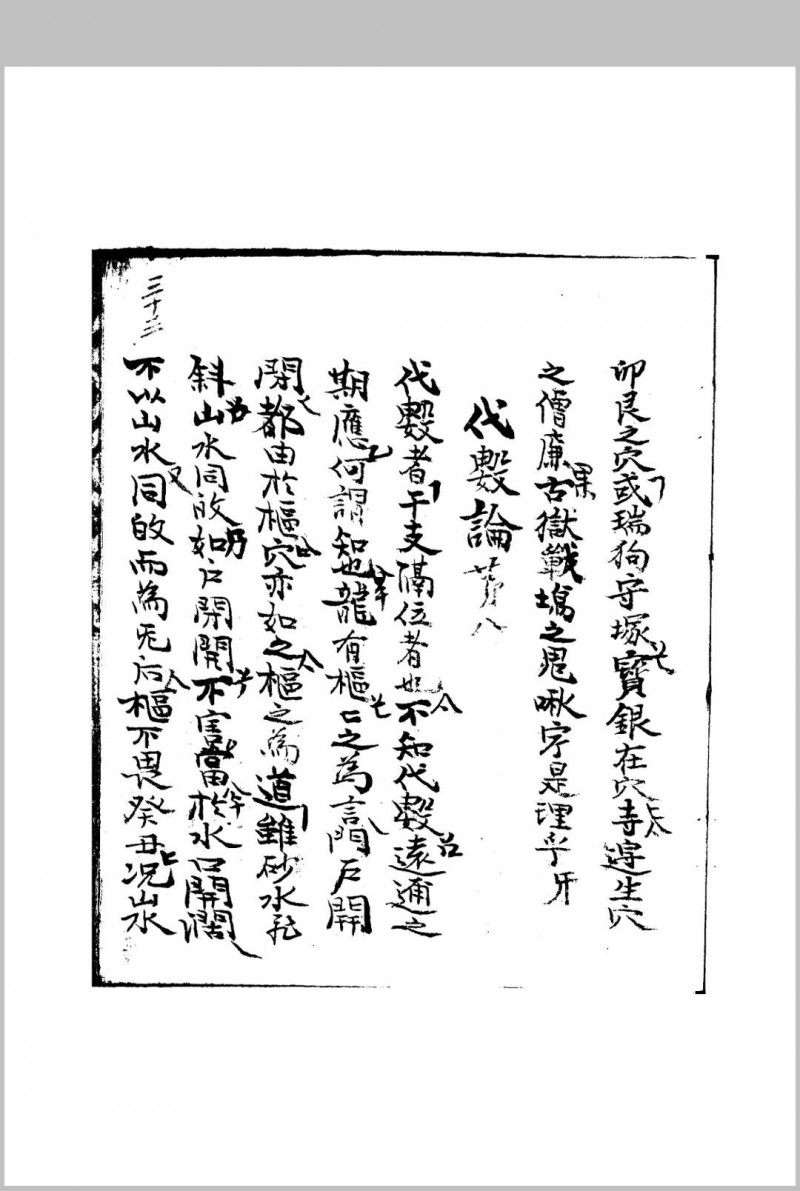 卯艮之穴或瑞狗守塚寶銀在穴寺边生穴
之僧廉古獄戰塲之鬼啾字是理乎牙
代數論 苐八
代數者干支隔位者也不知代數遠邇之
期應何謂知也龍有樞〻之為言門戶開
閉都由於樞穴亦如之樞之為道雖砂水乱
斜山水同的如戶開開不害當於水口開濶
不以山水同的而為无后樞不畏癸丑况山水
三十三